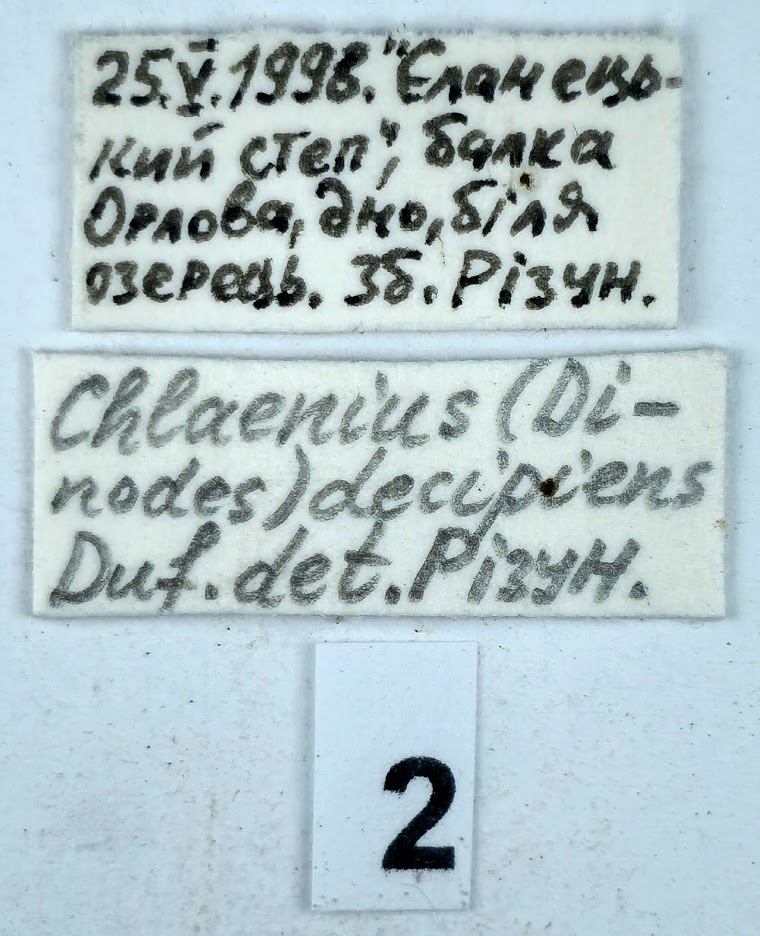 25.V.1998. "Єланець-
кий степ", балка
Орлова, дно, біля
озерець. Зб. Різун.
Chlaenius (Di-
nodes) decipiens
Duf. det. Різун.
2